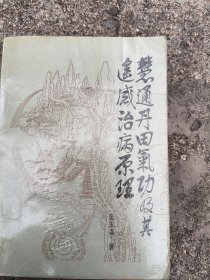 慧通丹田氣功及其
遠感治病原理
著